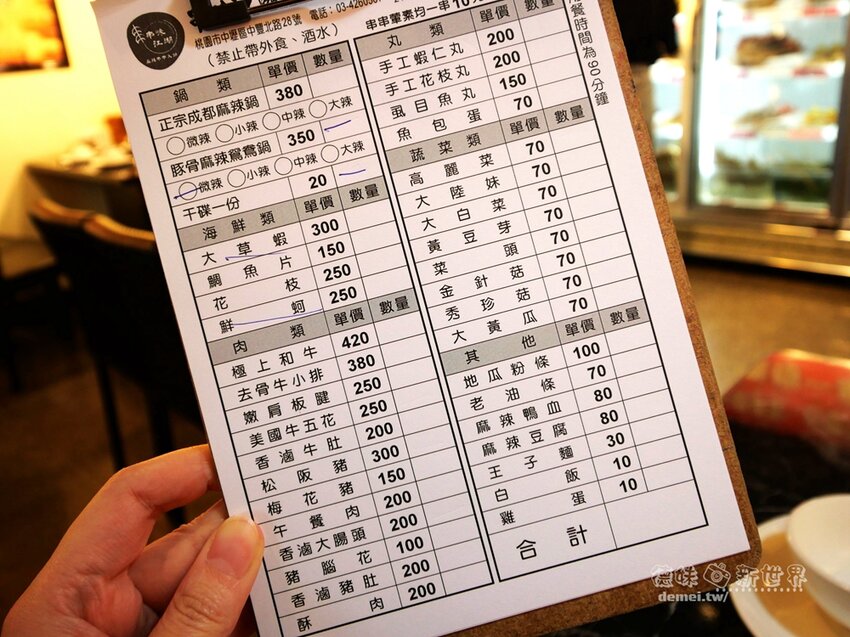 串串念
江湖
桃園市中壢區中豐北路28號 電話：03-426
（禁止帶外食、酒水）
串串葷素均一串10
用餐時間為90分鐘
鍋類 單價 數量
正宗成都麻辣鍋 380
○微辣 ○小辣 ○中辣 ○大辣
豚骨麻辣鴛鴦鍋 350
○微辣 ○小辣 ○中辣 ○大辣
干碟一份 20
海鮮類 單價 數量
大草蝦 300
鯛魚片 150
花枝 250
鮮蚵 250
肉類 單價 數量
極上和牛 420
去骨牛小排 380
嫩肩板腱 250
美國牛五花 250
香滷牛肚 200
松阪豬 300
梅花豬 150
午餐肉 200
香滷大腸頭 200
豬腦花 100
香滷豬肚 200
酥肉 200
丸類 單價 數量
手工蝦仁丸 200
手工花枝丸 200
虱目魚丸 150
魚包蛋 70
蔬菜類 單價 數量
高麗菜 70
大陸妹 70
大白菜 70
黃豆芽 70
菜頭 70
金針菇 70
秀珍菇 70
大黃瓜 70
其他 單價 數量
地瓜粉條 100
老油條 70
麻辣鴨血 80
麻辣豆腐 80
王子麵 30
白飯 10
雞蛋 10
合計
德味新世界
demei.tw/